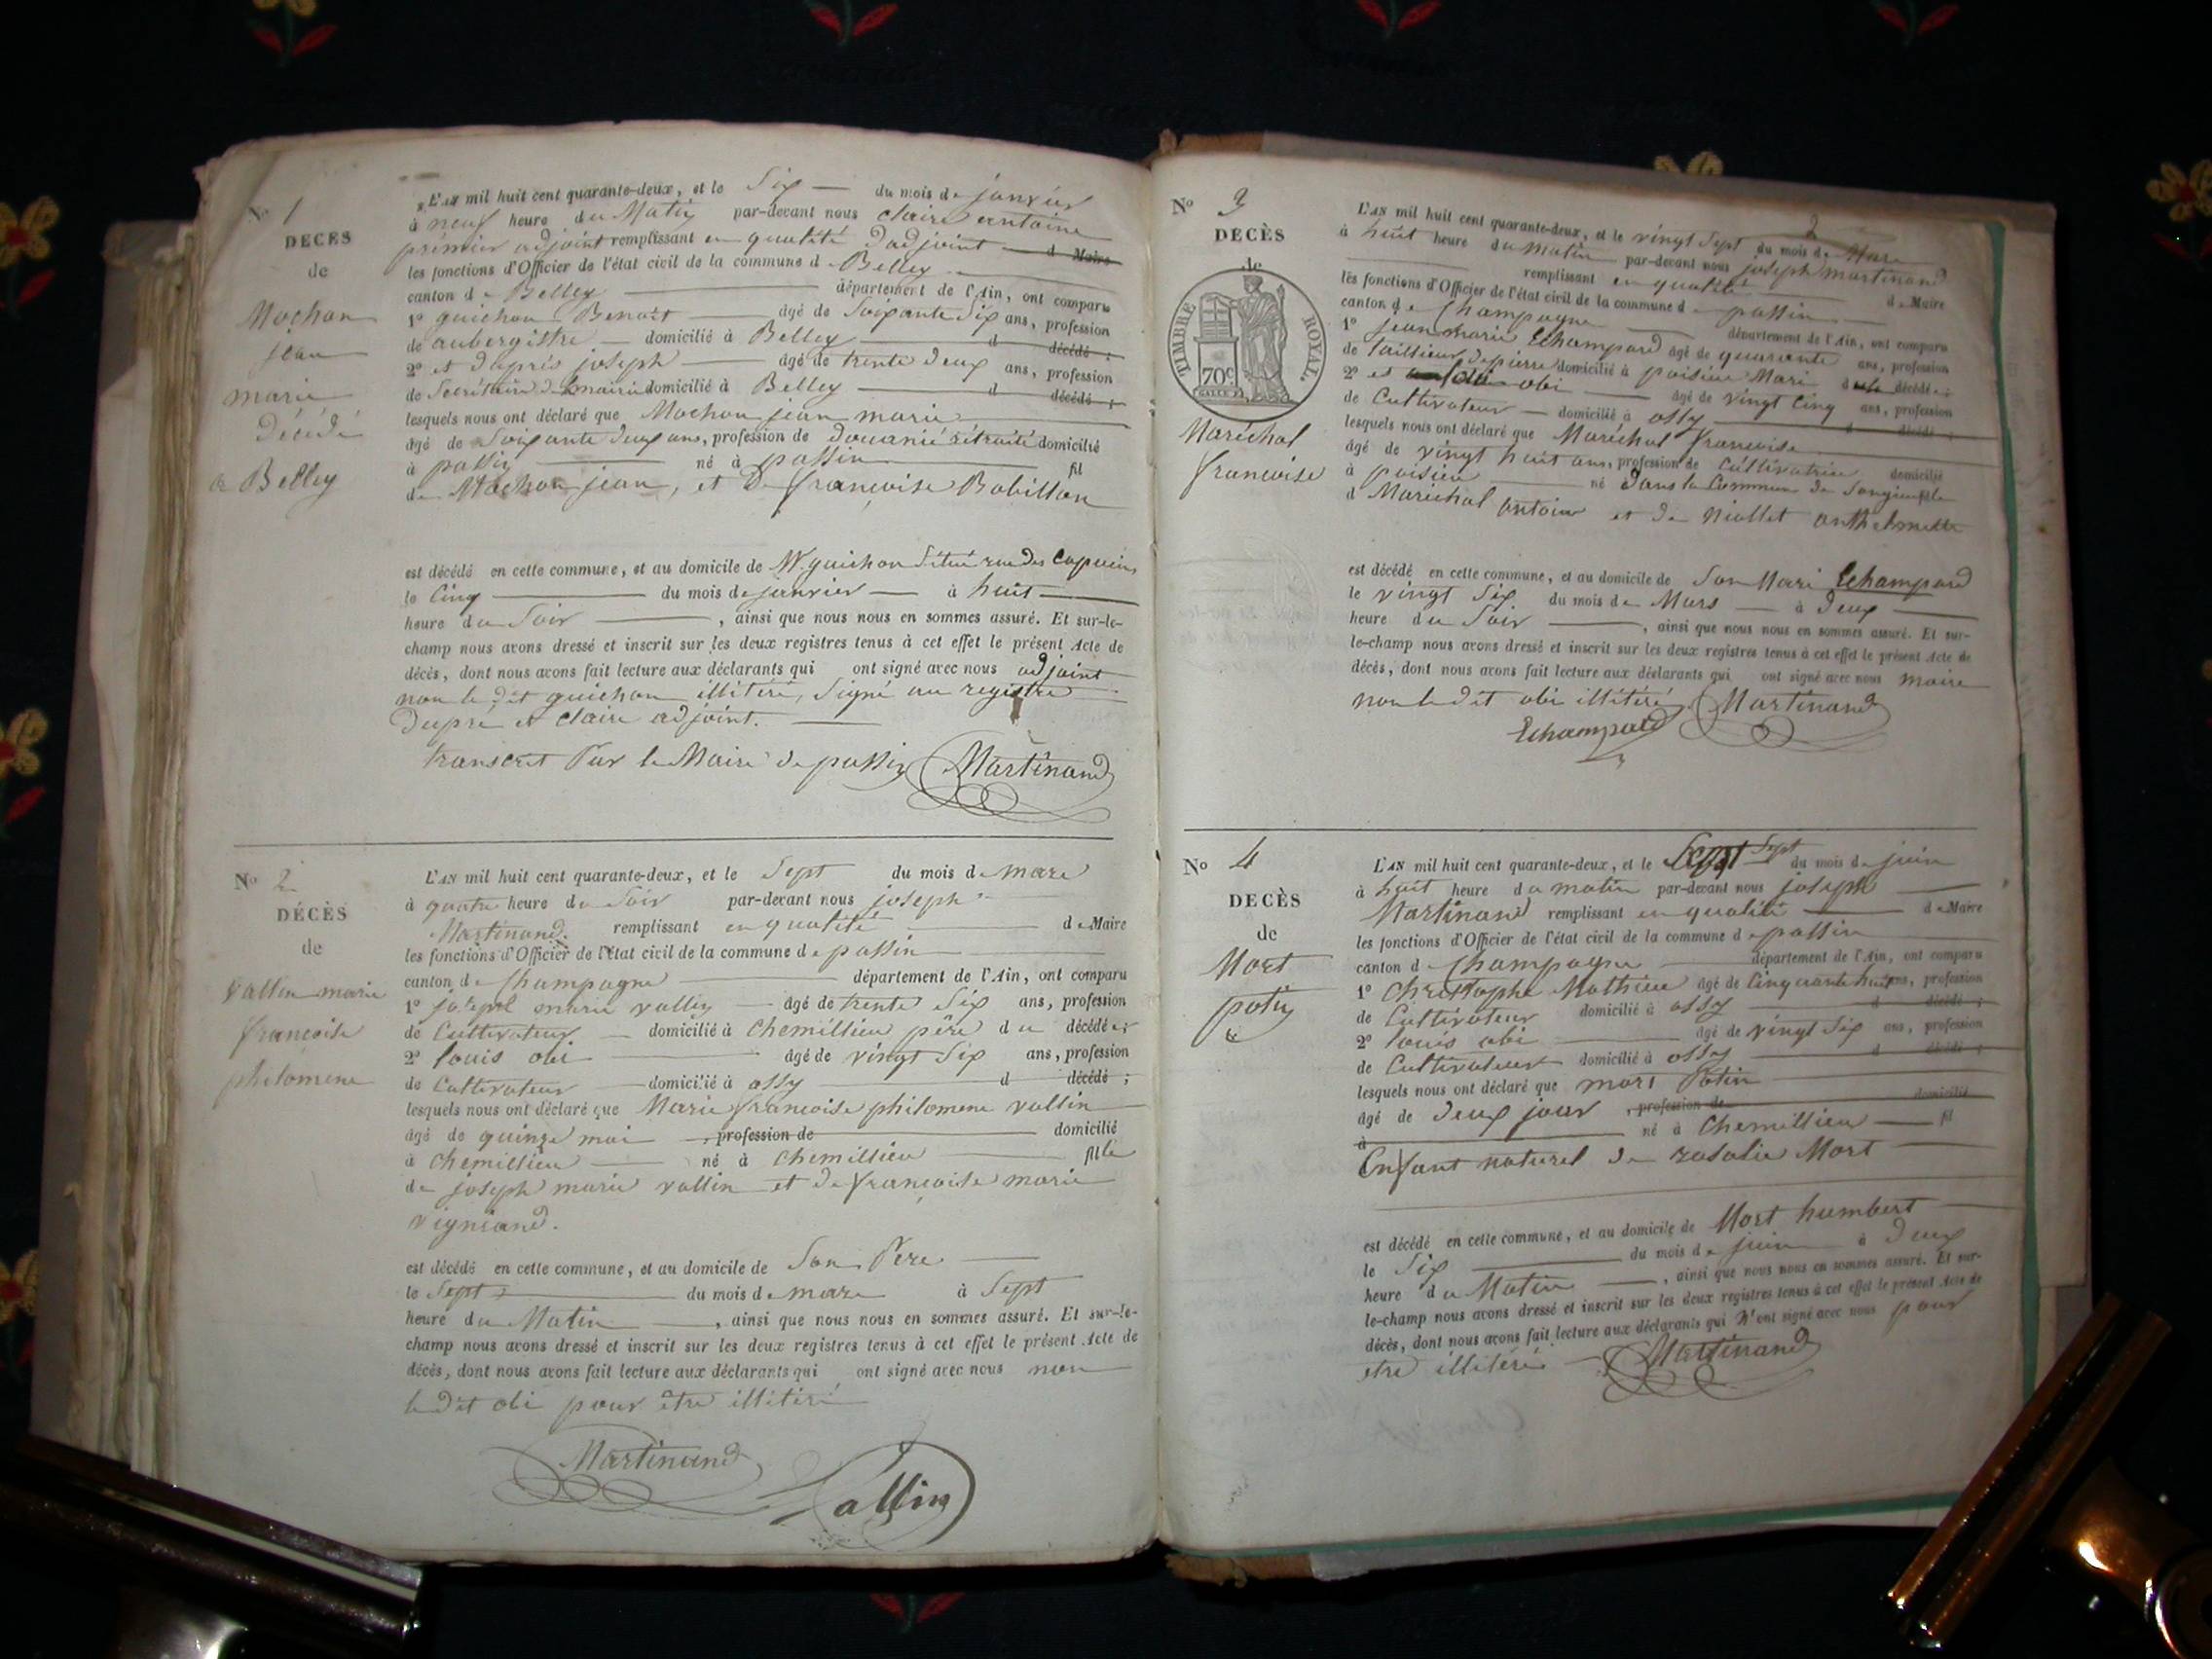 No 1
DÉCÈS
de
Mochon
jean
marie
Décédé
a Belley
L'AN mil huit cent quarante-deux, et le Six du mois de janvier
à neuf heure du Matin par-devant nous claire antoine
prémier adjoint remplissant en qualité d'adjoint d Maire
les fonctions d'Officier de l'état civil de la commune d Belley
canton d Belley département de l'Ain, ont comparu
1° guichon Benoit âgé de Soixante Six ans, profession
de aubergiste domicilié à Belley d décédé ;
2° et dupré joseph âgé de trente deux ans, profession
de Secrétaire de mairie domicilié à Belley d décédé ;
lesquels nous ont déclaré que Mochon jean marie
âgé de Soixante deux ans, profession de douanié rétraité domicilié
à passin né à passin fil
de Mochon jean, et De françoise Bobillon
est décédé en cette commune, et au domicile de Mr guichon Situé rue des Capucins
le Cinq du mois de janvier à huit
heure du Soir , ainsi que nous nous en sommes assuré. Et sur-le-
champ nous avons dressé et inscrit sur les deux registres tenus à cet effet le présent Acte de
décès, dont nous avons fait lecture aux déclarants qui ont signé avec nous adjoint
non le dit guichon illitéré, Signé au registre
Dupré et claire adjoint.
transcrit Par le Maire de passin Martinand
No 2
DÉCÈS
de
Vallin marie
françoise
philomene
L'AN mil huit cent quarante-deux, et le Sept du mois de mars
à quatre heure du Soir par-devant nous joseph
Martinand remplissant en qualité de Maire
les fonctions d'Officier de l'état civil de la commune de passin
canton de Champagne département de l'Ain, ont comparu
1° joseph marie vallin âgé de trente Six ans, profession
de Cultivateur domicilié à Chemillieu père d u décédé ;
2° louis obi âgé de vingt Six ans, profession
de Cultivateur domicilié à ossy d décédé ;
lesquels nous ont déclaré que Marie françoise philomene vallin
âgé de quinze moi , profession de domicilié
à chemillieu né à chemillieu fille
de joseph marie vallin et de françoise marie
vigniand.
est décédé en cette commune, et au domicile de Son Père
le Sept du mois de mars à Sept
heure du Matin , ainsi que nous nous en sommes assuré. Et sur-le-
champ nous avons dressé et inscrit sur les deux registres tenus à cet effet le présent Acte de
décès, dont nous avons fait lecture aux déclarants qui ont signé avec nous non
le dit obi pour être illitéré
Martinand
Vallin
2
No 3
DÉCÈS
de
TIMBRE ROYAL.
70c
Maréchal
françoise
L'AN mil huit cent quarante-deux, et le vingt Sept du mois de Mars
à huit heure du matin par-devant nous joseph martinand
remplissant en qualité de Maire
les fonctions d'Officier de l'état civil de la commune d passin
canton de Champagne département de l'Ain, ont comparu
1° jean marie Echampard âgé de quarante ans, profession
de taillieur de pierre domicilié à poisieu Mari d décédé ;
2° et obi âgé de vingt Cinq ans, profession
de Cultivateur domicilié à ossy d décédé ;
lesquels nous ont déclaré que Maréchal françoise
âgé de vingt huit ans, profession de Cultivatrice domicilié
à poisieu né Dans la Commune de Songieu fille
d Maréchal antoine et de niollet anthelmette
est décédé en cette commune, et au domicile de Son Mari Echampard
le vingt Six du mois de Mars à Deux
heure du Soir , ainsi que nous nous en sommes assuré. Et sur-
le-champ nous avons dressé et inscrit sur les deux registres tenus à cet effet le présent Acte de
décès, dont nous avons fait lecture aux déclarants qui ont signé avec nous maire
non le dit obi illitéré Martinand
Echampard
No 4
DÉCÈS
de
Mort
potin
L'AN mil huit cent quarante-deux, et le Sept Sept du mois de juin
à huit heure du matin par-devant nous joseph
Martinand remplissant en qualité de Maire
les fonctions d'Officier de l'état civil de la commune d passin
canton d Champagne département de l'Ain, ont comparu
1° Christophe Mathieu âgé de Cinquante huit ans, profession
de Cultivateur domicilié à ossy d décédé ;
2° louis obi âgé de vingt Six ans, profession
de Cultivateur domicilié à ossy d décédé ;
lesquels nous ont déclaré que mort Potin
âgé de Deux jour , profession de domicilié
à né à Chemillieu fil
Enfant naturel de rosalie Mort
est décédé en cette commune, et au domicile de Mort humbert
le Six du mois de juin à Deux
heure du Matin , ainsi que nous nous en sommes assuré. Et sur-
le-champ nous avons dressé et inscrit sur les deux registres tenus à cet effet le présent Acte de
décès, dont nous avons fait lecture aux déclarants qui n'ont signé avec nous pour
être illitéré Martinand